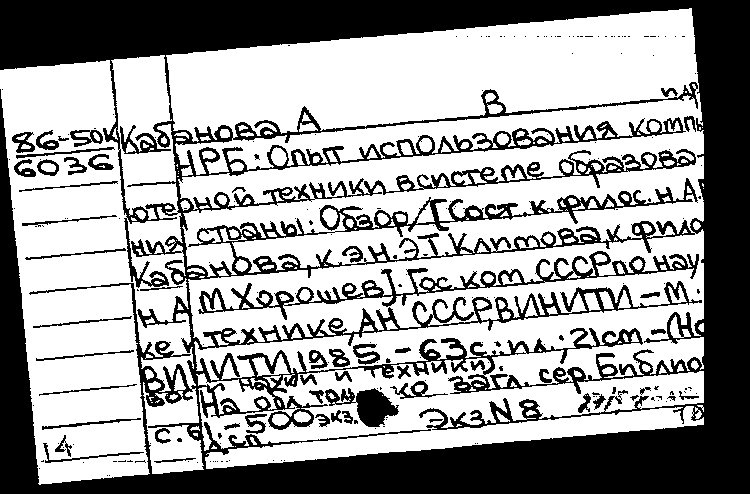 Кабанова, А В пдр
86-50К
6036
НРБ: Опыт использования компь
ютерной техники в системе образова-
ния страны: Обзор/[Сост. к. филос. н. А.
Кабанова, к.э.н. Э.Т. Климова, к. фило
н. А М. Хорошев]; Гос. ком. СССР по нау-
ке и технике, АН СССР, ВИНИТИ. – М.:
ВИНИТИ, 1985. – 63 с.: ил.; 21 см. – (Но
вост науки и техники).
На обл. только загл. сер. Библио
с. 61. – 500 экз. Экз. N 8
Дсп.
14